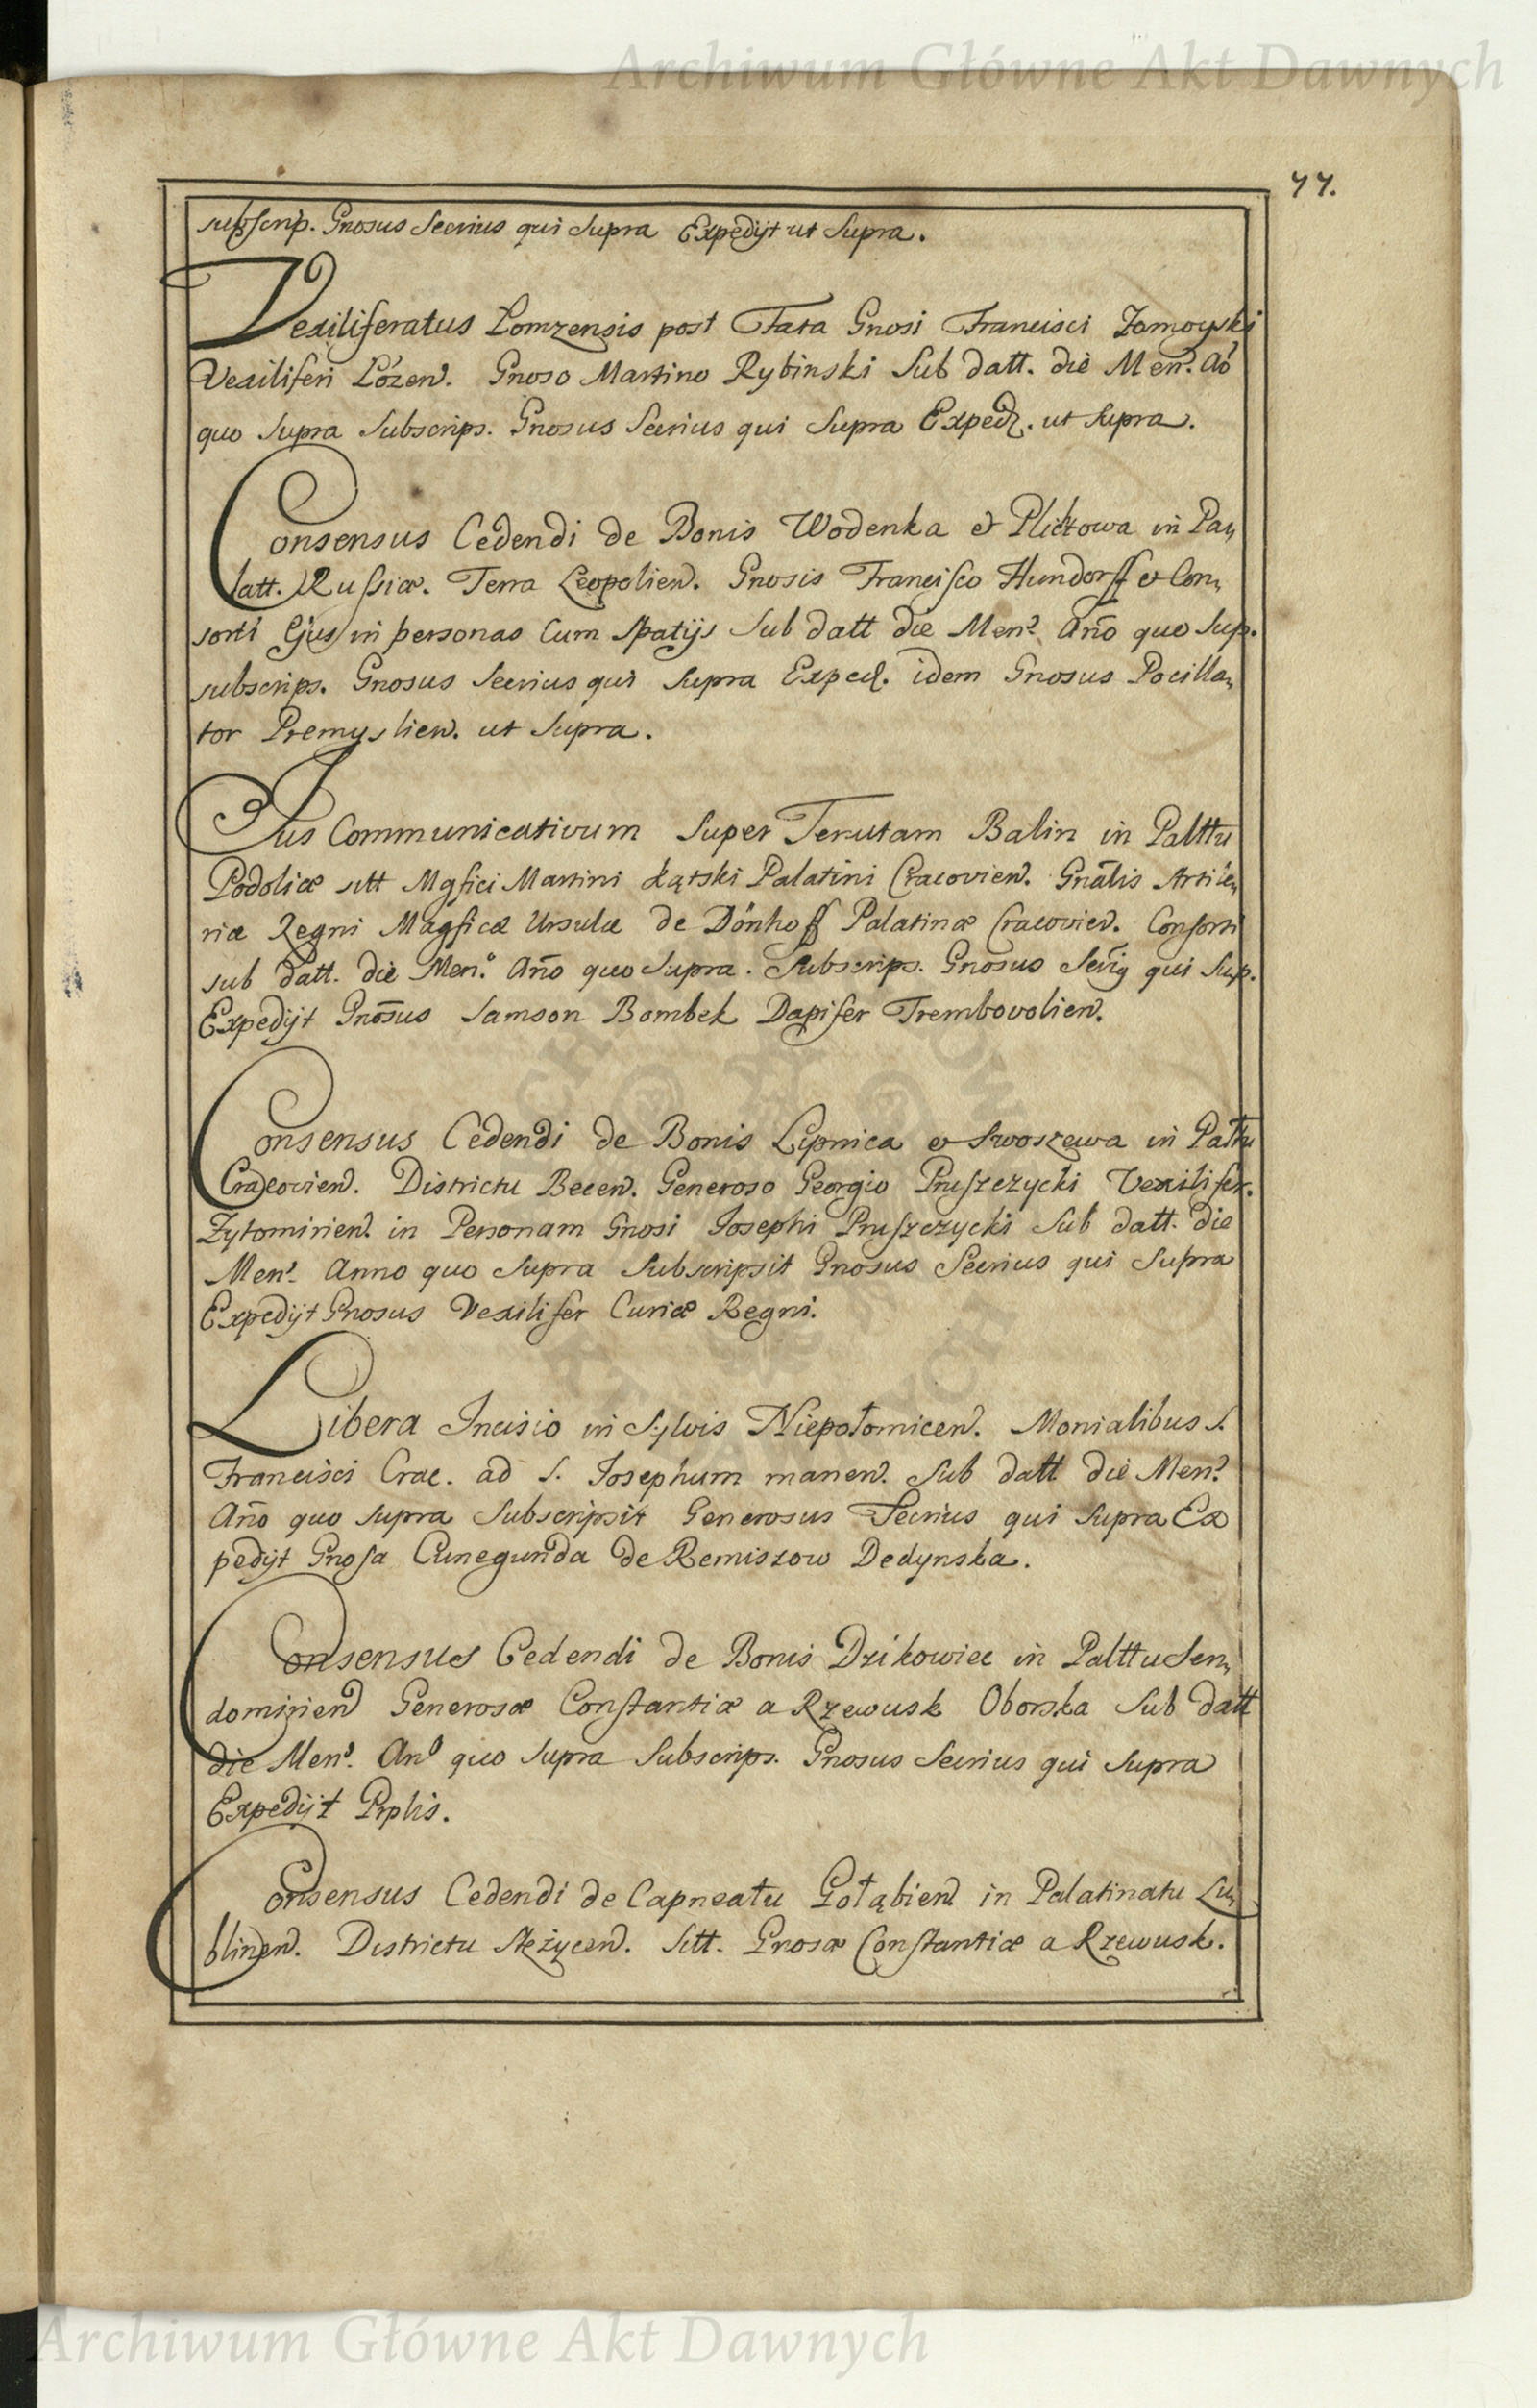 Archiwum Główne Akt Dawnych
77.
subscrip. Gnosus Secrius qui supra Expedijt ut Supra.
Vexiliferatus Lomzensis post Fata Gnosi Francisci Zamoyski
Vexiliferi Lózen. Gnoso Martino Rybinski Sub datt. die Men. Aö
quo Supra Subscrips. Gnosus Secrius qui Supra Exped. ut Supra.
Consensus Cedendi de Bonis Wodenka et in Pa,
latt. Russiæ. Terra Leopolien. Gnosis Francisco Hundorff et Con,
sorti Ejus in personas Cum Spatijs Sub datt die Men. Año quo Sup.
subscrips. Gnosus Secrius qui Supra Exped. idem Gnosus Pocilla,
tor Premyslien. ut Supra.
Jus Communicativum Super Tenutam Balin in Palttu
Podoliæ sitt Mgfici Martini Kątski Palatini Cracovien. Gnālis Artile,
riæ Regni Magficæ Ursulæ de Dönhoff Palatinæ Cracovien. Consorti
sub datt. die Men. Año quo Supra. Subscrips. Gnosus qui Sup.
Expedijt Gnōsus Samson Bombek Dapifer Trembovolien.
Consensus Cedendi de Bonis Lipnica et Swoszewa in Palttu
Cracovien. Districtu Becen. Generoso Georgio Pruszczycki Vexilifer.
Zytomirien. in Personam Gnosi Josephi Pruszczycki Sub datt. die
Men. Anno quo Supra Subscripsit Gnosus Secrius qui Supra
Expedijt Gnosus Vexilifer Curiæ Regni.
Libera Incisio in Sylvis Niepołomicen. Monialibus S.
Francisci Crac. ad S. Josephum manen. Sub datt die Men.
Año quo supra Subscripsit Generosus Secrius qui Supra Ex
pedijt Gnosa Cunegunda de Remiszow Dedynska.
Consensus Cedendi de Bonis Dzikowiec in Palttu Sen,
domirien Generosæ Constantiæ a Rzewusk Oborska Sub datt
die Men. Ano quo Supra Subscrips. Gnosus Secrius qui Supra
Expedijt Pplis.
Consensus Cedendi de Capneatu Gołąbien in Palatinatu Lu,
blinen. Districtu Stężycen. Sitt. Gnosæ Constantiæ a Rzewusk.
Archiwum Główne Akt Dawnych